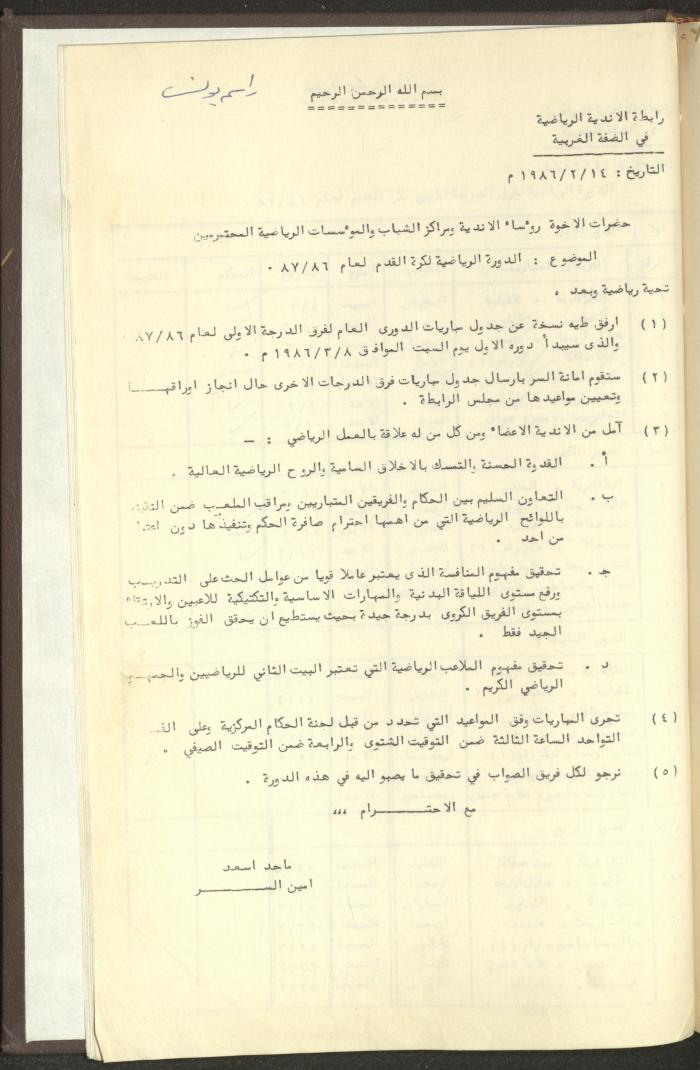 راسم يونس
بسم الله الرحمن الرحيم
=============
رابطة الاندية الرياضية
في الضفة الغربية
التاريخ : ١٩٨٦/٢/١٤ م
حضرات الاخوة روءساء الاندية ومراكز الشباب والموءسسات الرياضية المحترمين
الموضوع : الدورة الرياضية لكرة القدم لعام ٨٧/٨٦ ٠
تحية رياضية وبعد ،
(١) ارفق طيه نسخة عن جدول مباريات الدورى العام لفرق الدرجة الاولى لعام ٨٧/٨٦
والذى سيبدأ دوره الاول يوم السبت الموافق ١٩٨٦/٣/٨ م ٠
(٢) ستقوم امانة السر بارسال جدول مباريات فرق الدرجات الاخرى حال انجاز اوراقهـــا
وتعيين مواعيدها من مجلس الرابطة ٠
(٣) آمل من الاندية الاعضاء ومن كل من له علاقة بالعمل الرياضي : ــ
أ ٠ القدوة الحسنة والتمسك بالاخلاق السامية والروح الرياضية العالية ٠
ب ٠ التعاون السليم بين الحكام والفريقين المتباريين ومراقب الملعب ضمن
باللوائح الرياضية التي من اهمها احترام صافرة الحكم وتنفيذها دون
من احد ٠
جـ ٠ تحقيق مفهوم المنافسة الذى يعتبر عاملا قويا من عوامل الحث على التدريـب
ورفع مستوى اللياقة البدنية والمهارات الاساسية والتكتيكية للاعبين والارتقاء
بمستوى الفريق الكروى بدرجة جيدة بحيث يستطيع ان يحقق الفوز باللعـب
الجيد فقط ٠
د ٠ تحقيق مفهوم الملاعب الرياضية التي تعتبر البيت الثاني للرياضيين
الرياضي الكريم ٠
(٤) تجرى المباريات وفق المواعيد التي تحدد من قبل لجنة الحكام المركزية وعلى
التواجد الساعة الثالثة ضمن التوقيت الشتوى والرابعة ضمن التوقيت الصيفي ٠
(٥) نرجو لكل فريق الصواب في تحقيق ما يصبو اليه في هذه الدورة ٠
مع الاحتـــــرام ،،،
ماجد اسعد
امين الســــــر